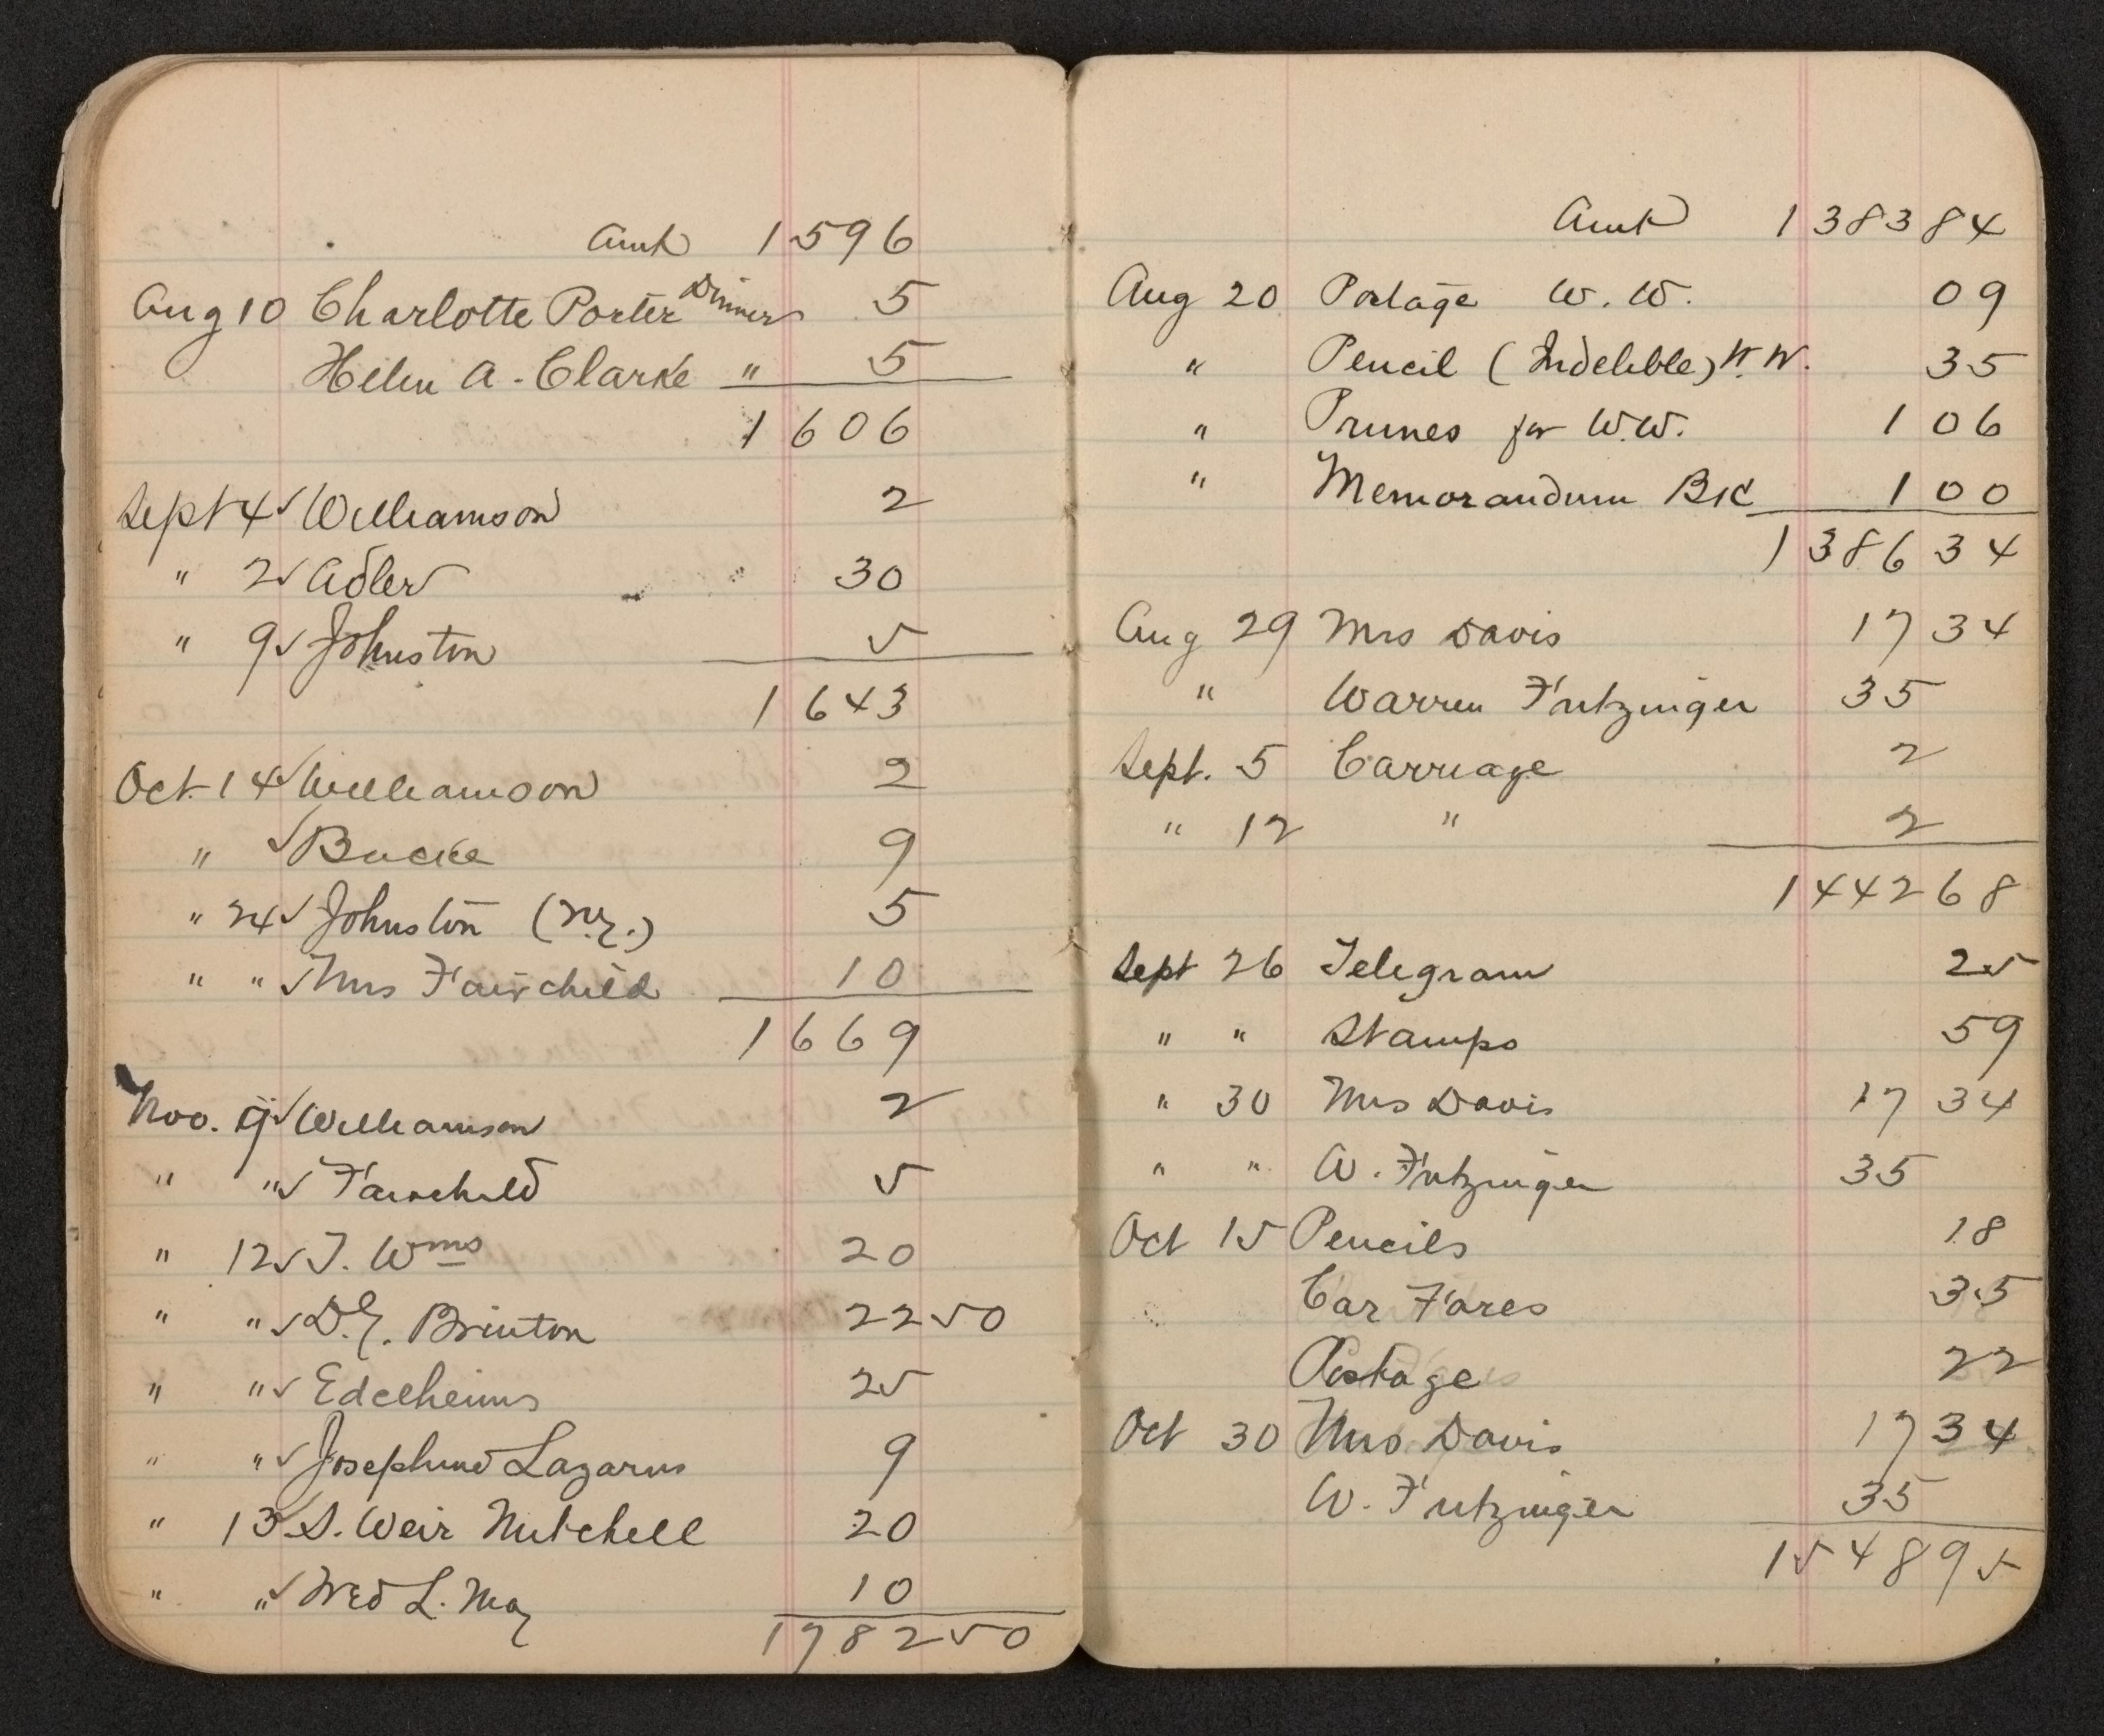 Amt 1596
Aug 10 Charlotte Porter Dinner 5
Helen A. Clarke " 5
1606
Sept 4 ✓ Williamson 2
" 2 ✓ Adler 30
" 9 ✓ Johnston 5
1643
Oct 14 ✓ Williamson 2
" ✓ Bucke 9
" 24 ✓ Johnston (N.Y.) 5
" " ✓ Mrs Fairchild 10
1669
Nov. 9 ✓ Williamson 2
" " ✓ Fairchild 5
" 12 ✓ T. Wms 20
" " ✓ D.G. Brinton 22 50
" " ✓ Edelheims 25
" " ✓ Josephine Lazarus 9
" 13 ✓ S. Weir Mitchell 20
" " ✓ Fred L. May 10
1782 50
Amt 1383 84
Aug 20 Postage W.W. 09
" Pencil (Indelible) W.W. 35
" Prunes for W.W. 1 06
" Memorandum Bk 1 00
1386 34
Aug 29 Mrs Davis 17 34
" Warren Fritzinger 35
Sept. 5 Carriage 2
" 12 " 2
1442 68
Sept 26 Telegram 25
" " Stamps 59
" 30 Mrs Davis 17 34
" " W. Fritzinger 35
Oct 15 Pencils 18
Car Fares 35
Postage 22
Oct 30 Mrs. Davis 17 34
W. Fritzinger 35
1548 95